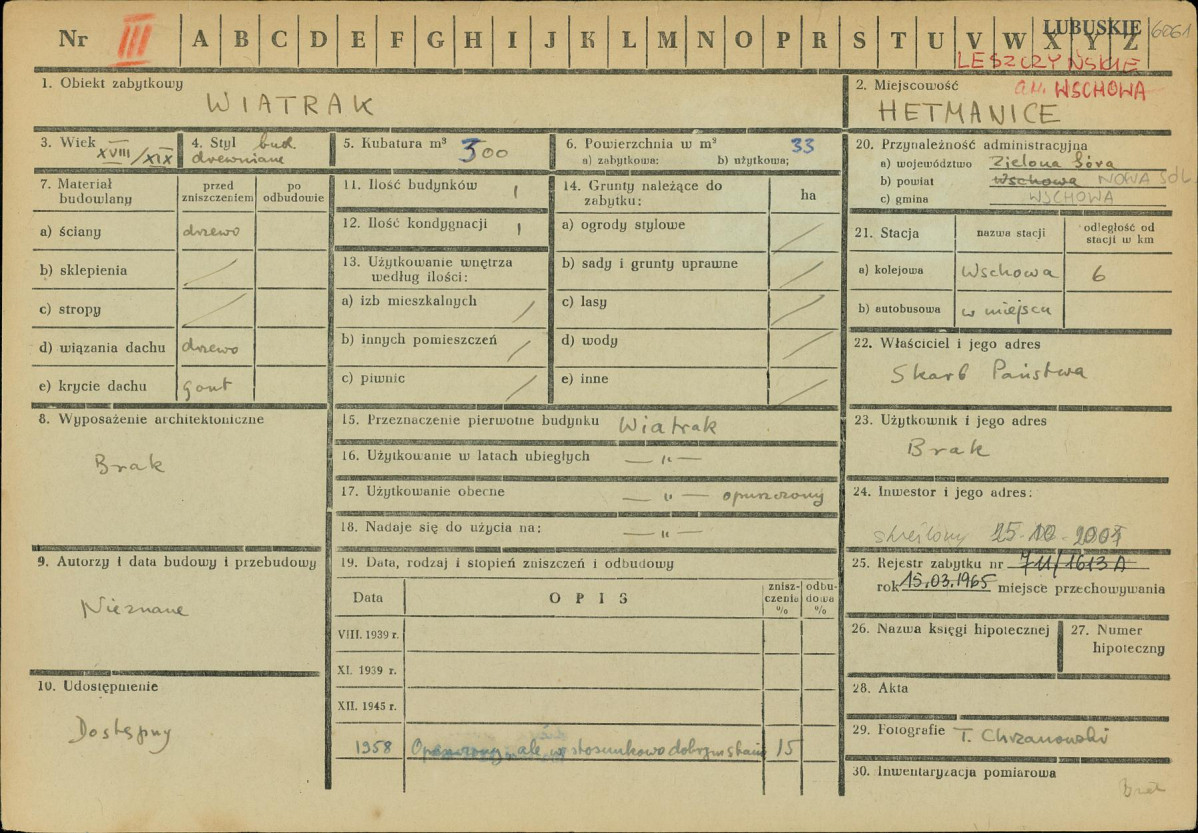 Nr III A B C D E F G H I J K L M N O P R S T U V W X Y Z LUBUSKIE 6061
LESZCZYŃSKIE
1. Obiekt zabytkowy
WIATRAK
2. Miejscowość gm. WSCHOWA
HETMANICE
3. Wiek XVIII/XIX
4. Styl bud. drewniane
5. Kubatura m³ 300
6. Powierzchnia w m³ 33
a) zabytkowa: b) użytkowa;
7. Materiał budowlany
przed zniszczeniem
po odbudowie
a) ściany drzewo
b) sklepienia /
c) stropy /
d) wiązania dachu drzewo
e) krycie dachu gont
8. Wyposażenie architektoniczne
Brak
9. Autorzy i data budowy i przebudowy
Nieznane
10. Udostępnienie
Dostępny
11. Ilość budynków 1
12. Ilość kondygnacji 1
13. Użytkowanie wnętrza według ilości:
a) izb mieszkalnych /
b) innych pomieszczeń /
c) piwnic /
14. Grunty należące do zabytku: ha
a) ogrody stylowe /
b) sady i grunty uprawne /
c) lasy /
d) wody /
e) inne /
15. Przeznaczenie pierwotne budynku Wiatrak
16. Użytkowanie w latach ubiegłych — " —
17. Użytkowanie obecne — " — opuszczony
18. Nadaje się do użycia na: — " —
19. Data, rodzaj i stopień zniszczeń i odbudowy
Data OPIS zniszczenia % odbudowa %
VIII. 1939 r.
XI. 1939 r.
XII. 1945 r.
1958 Opuszczony, ale w stosunkowo dobrym stanie 15
20. Przynależność administracyjna
a) województwo Zielona Góra
b) powiat Wschowa NOWA SÓL
c) gmina WSCHOWA
21. Stacja
nazwa stacji
odległość od stacji w km
a) kolejowa Wschowa 6
b) autobusowa w miejscu
22. Właściciel i jego adres
Skarb Państwa
23. Użytkownik i jego adres
Brak
24. Inwestor i jego adres:
skreślony 15.10.2007
25. Rejestr zabytku nr 711/1613A
rok 15.03.1965 miejsce przechowywania
26. Nazwa księgi hipotecznej
27. Numer hipoteczny
28. Akta
29. Fotografie T. Chrzanowski
30. Inwentaryzacja pomiarowa
Brak